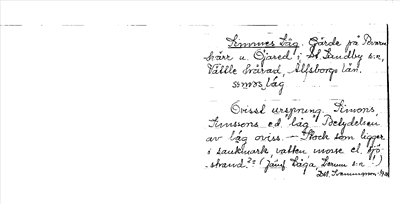 Simmes Låg. Gärde på Bvarn
kärr u. Öjared i St. Lundby s:n,
Vättle härad, Älfsborgs län.
låg
Ovisst ursprung. Simons,
Simssons ed. "låg" Betydelsen
av låg oviss. – Stock som ligger
i sankmark vatten mosse el. sjö-
strand?" (Jämf. Låga, Lerum s:n!)